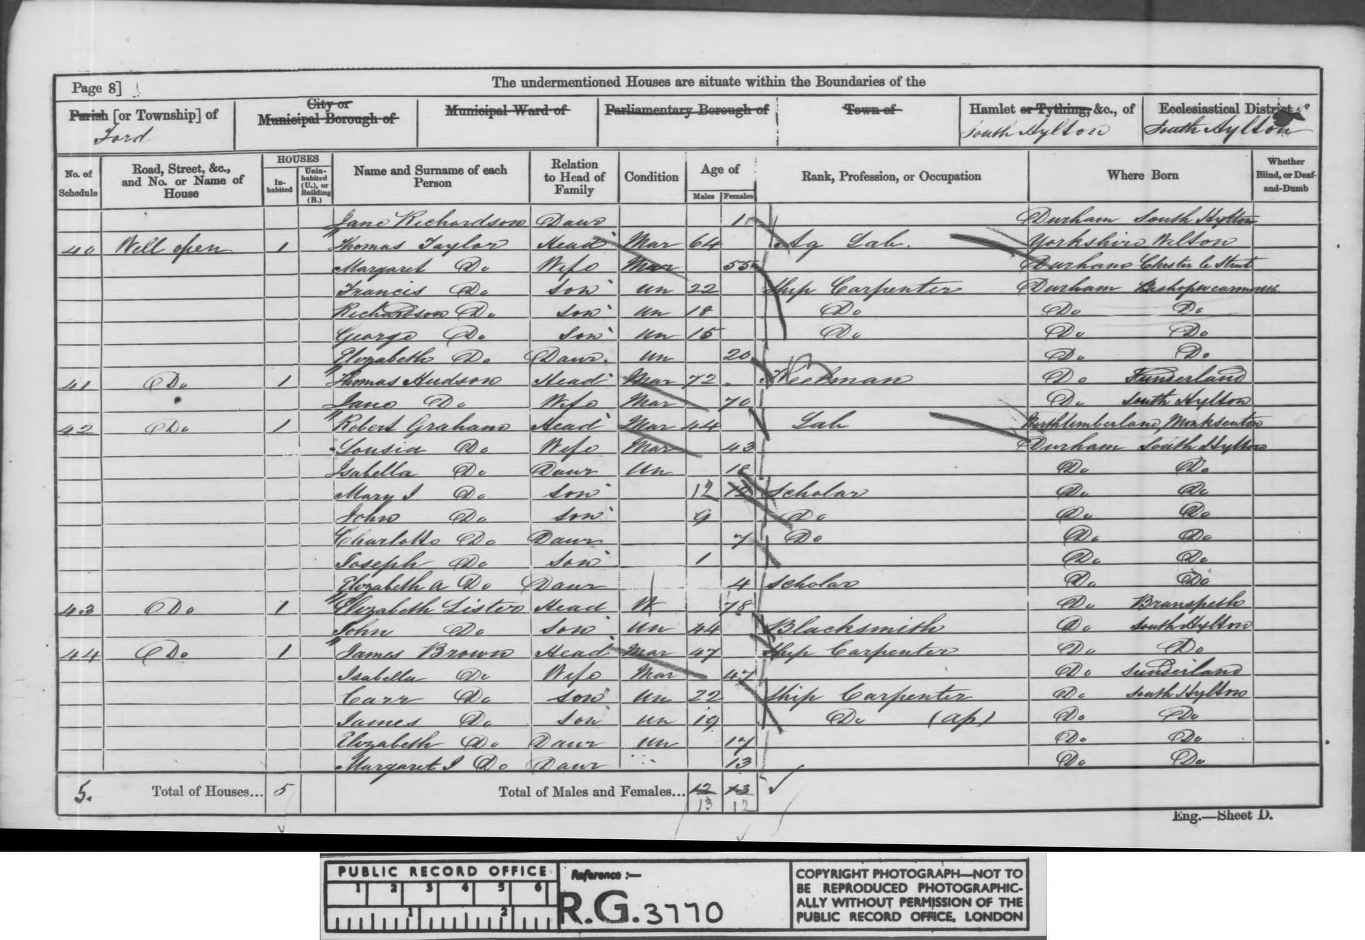 Page 8]
The undermentioned Houses are situate within the Boundaries of the
Parish [or Township] of
City or Municipal Borough of
Municipal Ward of
Parliamentary Borough of
Town of
Hamlet or Tything, &c., of
Ecclesiastical District of
Ford
South Hylton
South Hylton
No. of Schedule
Road, Street, &c., and No. or Name of House
HOUSES
Inhabited
Uninhabited (U.), or Building (B.)
Name and Surname of each Person
Relation to Head of Family
Condition
Age of
Males
Females
Rank, Profession, or Occupation
Where Born
Whether Blind, or Deaf-and-Dumb
Jane Richardson Daur 1 Durham South Hylton
40 Well open 1 Thomas Taylor Head Mar 64 Ag Lab. Yorkshire Wilton
Margaret Do Wife Mar 55 Durham Chester le Street
Francis Do Son Un 22 Ship Carpenter Durham Bishopwearmouth
Richardson Do Son Un 18 Do Do Do
George Do Son Un 15 Do Do Do
Elizabeth Do Daur. Un 20 Do Do
41 Do 1 Thomas Hudson Head Mar 72 Keelman Do Sunderland
Jane Do Wife Mar 70 Do South Hylton
42 Do 1 Robert Graham Head Mar 44 Lab Northumberland, Monkseaton
Lousia Do Wife Mar 43 Durham South Hylton
Isabella Do Daur Un Do Do
Mary J Do Son 12 Scholar Do Do
John Do Son 9 Do Do Do
Charlotte Do Daur 7 Do Do Do
Joseph Do Son 1 Do Do
Elizabeth A Do Daur 4 Scholar Do Do
43 Do 1 Elizabeth Lister Head W 78 Do Branspeth
John Do Son Un 44 Blacksmith Do South Hylton
44 Do 1 James Brown Head Mar 47 Ship Carpenter Do Do
Isabella Do Wife Mar 47 Do Sunderland
Carr Do Son Un 22 Ship Carpenter Do South Hylton
James Do Son Un 19 Do (ap) Do Do
Elizabeth Do Daur Un 17 Do Do
Margaret J Do Daur 13 Do Do
5. Total of Houses... 5 Total of Males and Females... 12 13
13 12
Eng.—Sheet D.
PUBLIC RECORD OFFICE
1 2 3 4 5 6
1 2
Reference:—
R.G. 3770
COPYRIGHT PHOTOGRAPH—NOT TO
BE REPRODUCED PHOTOGRAPHIC-
ALLY WITHOUT PERMISSION OF THE
PUBLIC RECORD OFFICE, LONDON